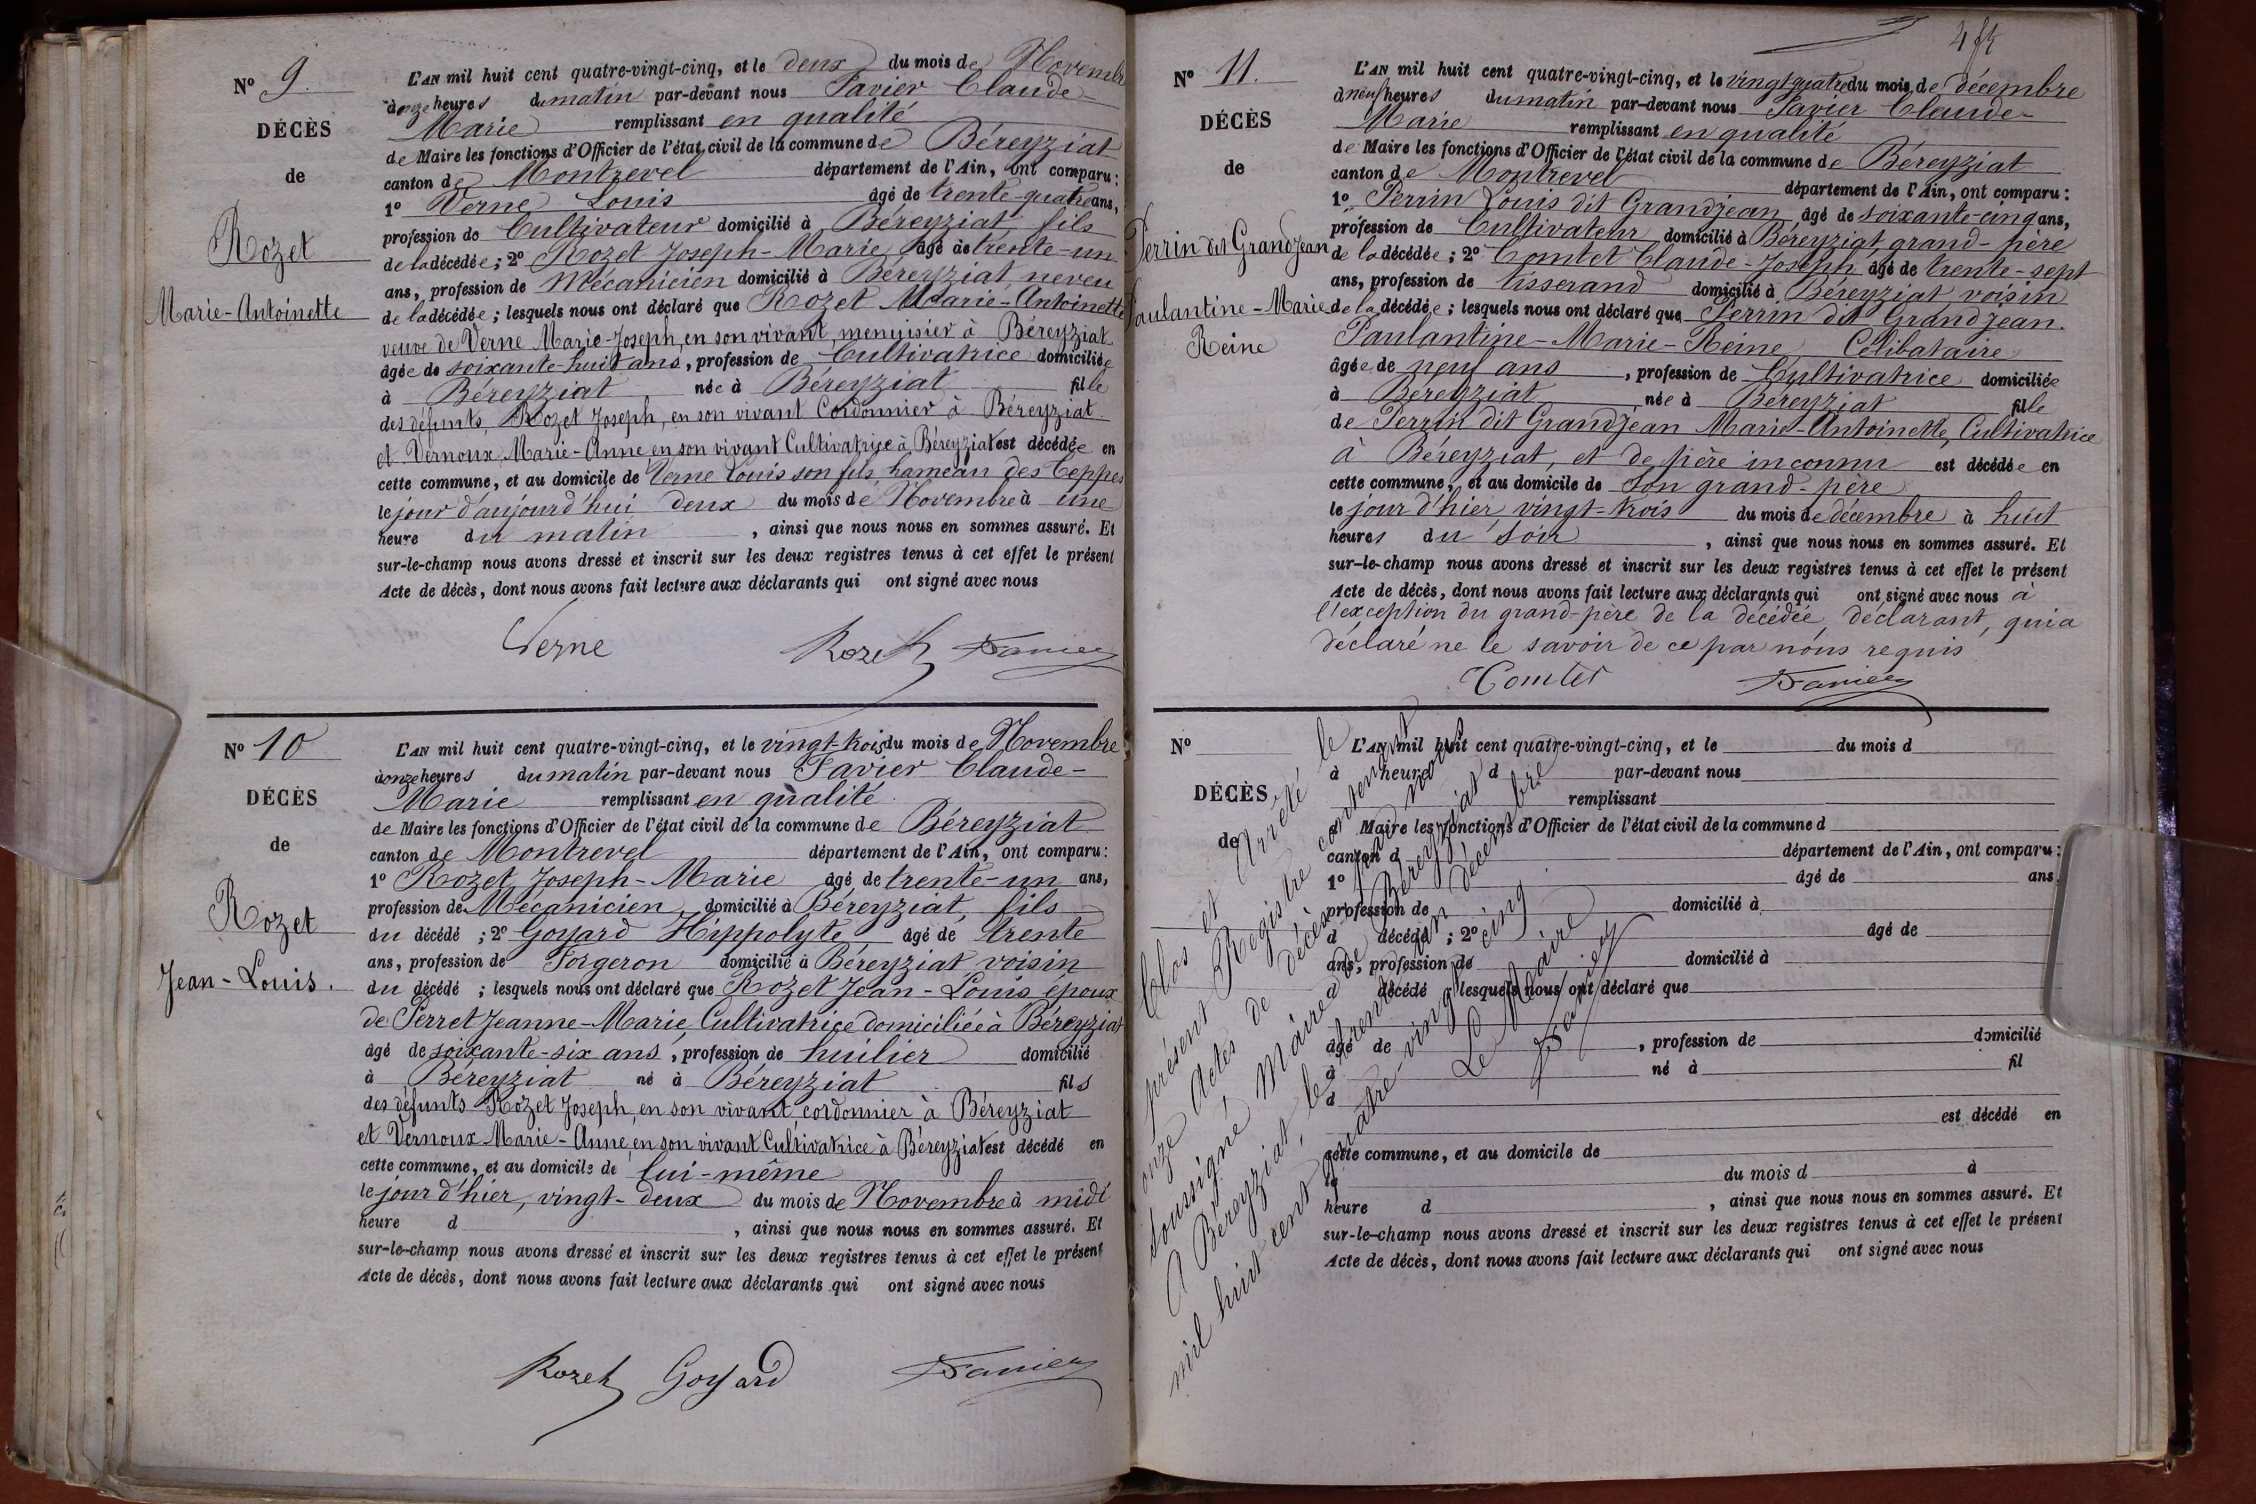 Nº 9
DÉCÈS
de
Rozet
Marie-Antoinette
L'AN mil huit cent quatre-vingt-cinq, et le deux du mois de Novembre
à onze heures du matin par-devant nous Favier Claude-
Marie remplissant en qualité
de Maire les fonctions d'Officier de l'état civil de la commune de Béreyziat
canton de Montrevel département de l'Ain, ont comparu :
1º Verne Louis âgé de trente-quatre ans,
profession de Cultivateur domicilié à Béreyziat, fils
de la décédée ; 2º Rozet Joseph-Marie âgé de trente-un
ans, profession de Mécanicien domicilié à Béreyziat, neveu
de la décédée ; lesquels nous ont déclaré que Rozet Marie-Antoinette
veuve de Verne Marie-Joseph, en son vivant, menuisier à Béreyziat
âgée de soixante-huit ans, profession de Cultivatrice domiciliée
à Béreyziat née à Béreyziat fille
des défunts, Rozet Joseph, en son vivant Cordonnier à Béreyziat
et Vernoux Marie-Anne en son vivant Cultivatrice à Béreyziat est décédée en
cette commune, et au domicile de Verne Louis son fils hameau des Teppes
le jour d'aujourd'hui deux du mois de Novembre à une
heure du matin, ainsi que nous nous en sommes assuré. Et
sur-le-champ nous avons dressé et inscrit sur les deux registres tenus à cet effet le présent
Acte de décès, dont nous avons fait lecture aux déclarants qui ont signé avec nous
Verne Rozet Favier
Nº 10
DÉCÈS
de
Rozet
Jean-Louis.
L'AN mil huit cent quatre-vingt-cinq, et le vingt-trois du mois de Novembre
à onze heures du matin par-devant nous Favier Claude-
Marie remplissant en qualité
de Maire les fonctions d'Officier de l'état civil de la commune de Béreyziat
canton de Montrevel département de l'Ain, ont comparu :
1º Rozet Joseph-Marie âgé de trente-un ans,
profession de Mécanicien domicilié à Béreyziat, fils
du décédé ; 2º Goyard Hippolyte âgé de trente
ans, profession de Forgeron domicilié à Béreyziat voisin
du décédé ; lesquels nous ont déclaré que Rozet Jean-Louis époux
de Perret Jeanne-Marie, Cultivatrice domiciliée à Béreyziat
âgé de soixante-six ans, profession de huilier domicilié
à Béreyziat né à Béreyziat fils
des défunts Rozet Joseph, en son vivant cordonnier à Béreyziat
et Vernoux Marie-Anne, en son vivant Cultivatrice à Béreyziat est décédé en
cette commune, et au domicile de lui-même
le jour d'hier, vingt-deux du mois de Novembre à midi
heure d , ainsi que nous nous en sommes assuré. Et
sur-le-champ nous avons dressé et inscrit sur les deux registres tenus à cet effet le présent
Acte de décès, dont nous avons fait lecture aux déclarants qui ont signé avec nous
Rozet Goyard Favier
Nº 11.
DÉCÈS
de
Perrin dit Grandjean
Paulantine-Marie
Reine
L'AN mil huit cent quatre-vingt-cinq, et le vingt-quatre du mois de décembre
à neuf heures du matin par-devant nous Favier Claude-
Marie remplissant en qualité
de Maire les fonctions d'Officier de l'état civil de la commune de Béreyziat
canton de Montrevel département de l'Ain, ont comparu :
1º Perrin Louis dit Grandjean âgé de soixante-cinq ans,
profession de Cultivateur domicilié à Béreyziat, grand-père
de la décédée ; 2º Comtet Claude-Joseph âgé de trente-sept
ans, profession de tisserand domicilié à Béreyziat, voisin
de la décédée ; lesquels nous ont déclaré que Perrin dit Grandjean.
Paulantine-Marie-Reine Célibataire
âgée de neuf ans, profession de Cultivatrice domiciliée
à Béreyziat née à Béreyziat fille
de Perrin dit Grandjean Marie-Antoinette, Cultivatrice
à Béreyziat, et de père inconnu est décédée en
cette commune, et au domicile de son grand-père
le jour d'hier vingt-trois du mois de décembre à huit
heures du soir, ainsi que nous nous en sommes assuré. Et
sur-le-champ nous avons dressé et inscrit sur les deux registres tenus à cet effet le présent
Acte de décès, dont nous avons fait lecture aux déclarants qui ont signé avec nous à
l'exception du grand-père de la décédée, déclarant, qui a
déclaré ne le savoir de ce par nous requis
Comtet Favier
Nº
DÉCÈS
de
L'AN mil huit cent quatre-vingt-cinq, et le du mois d
à heure d par-devant nous
remplissant
d Maire les fonctions d'Officier de l'état civil de la commune d
canton d département de l'Ain, ont comparu :
1º âgé de ans,
profession de domicilié à
d décédé ; 2º âgé de
ans, profession de domicilié à
d décédé ; lesquels nous ont déclaré que
âgé de , profession de domicilié
à né à fil
d
est décédé en
cette commune, et au domicile de
le du mois d à
heure d , ainsi que nous nous en sommes assuré. Et
sur-le-champ nous avons dressé et inscrit sur les deux registres tenus à cet effet le présent
Acte de décès, dont nous avons fait lecture aux déclarants qui ont signé avec nous
Clos et Arrêté le
présent Registre contenant
onze Actes de décès par nous
soussigné Maire de Béreyziat
A Béreyziat, le trente un décembre
mil huit cent quatre-vingt cinq
Le Maire
Favier